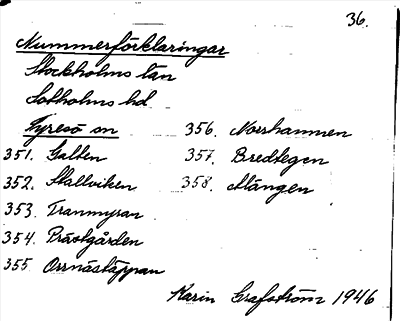 36.
Nummerförklaringar
Stockholms län
Sotholms hd
Tyresö sn
351. Galten
352. Stallviken
353. Tranmyran
354. Prästgården
355. Orrnästäppan
356. Norrhammen
357. Bredtegen
358. Mången
Karin Grafström 1946